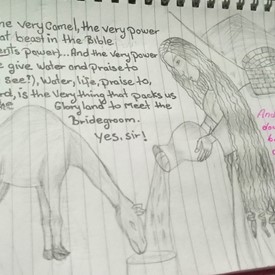 he very Camel, the very power
at beast in the Bible
power)...And the very power
give water and praise to
see?), Water, life, praise to,
rd, is the very thing that packs us
the Gloryland to meet the
Bridegroom.
Yes, sir!
And